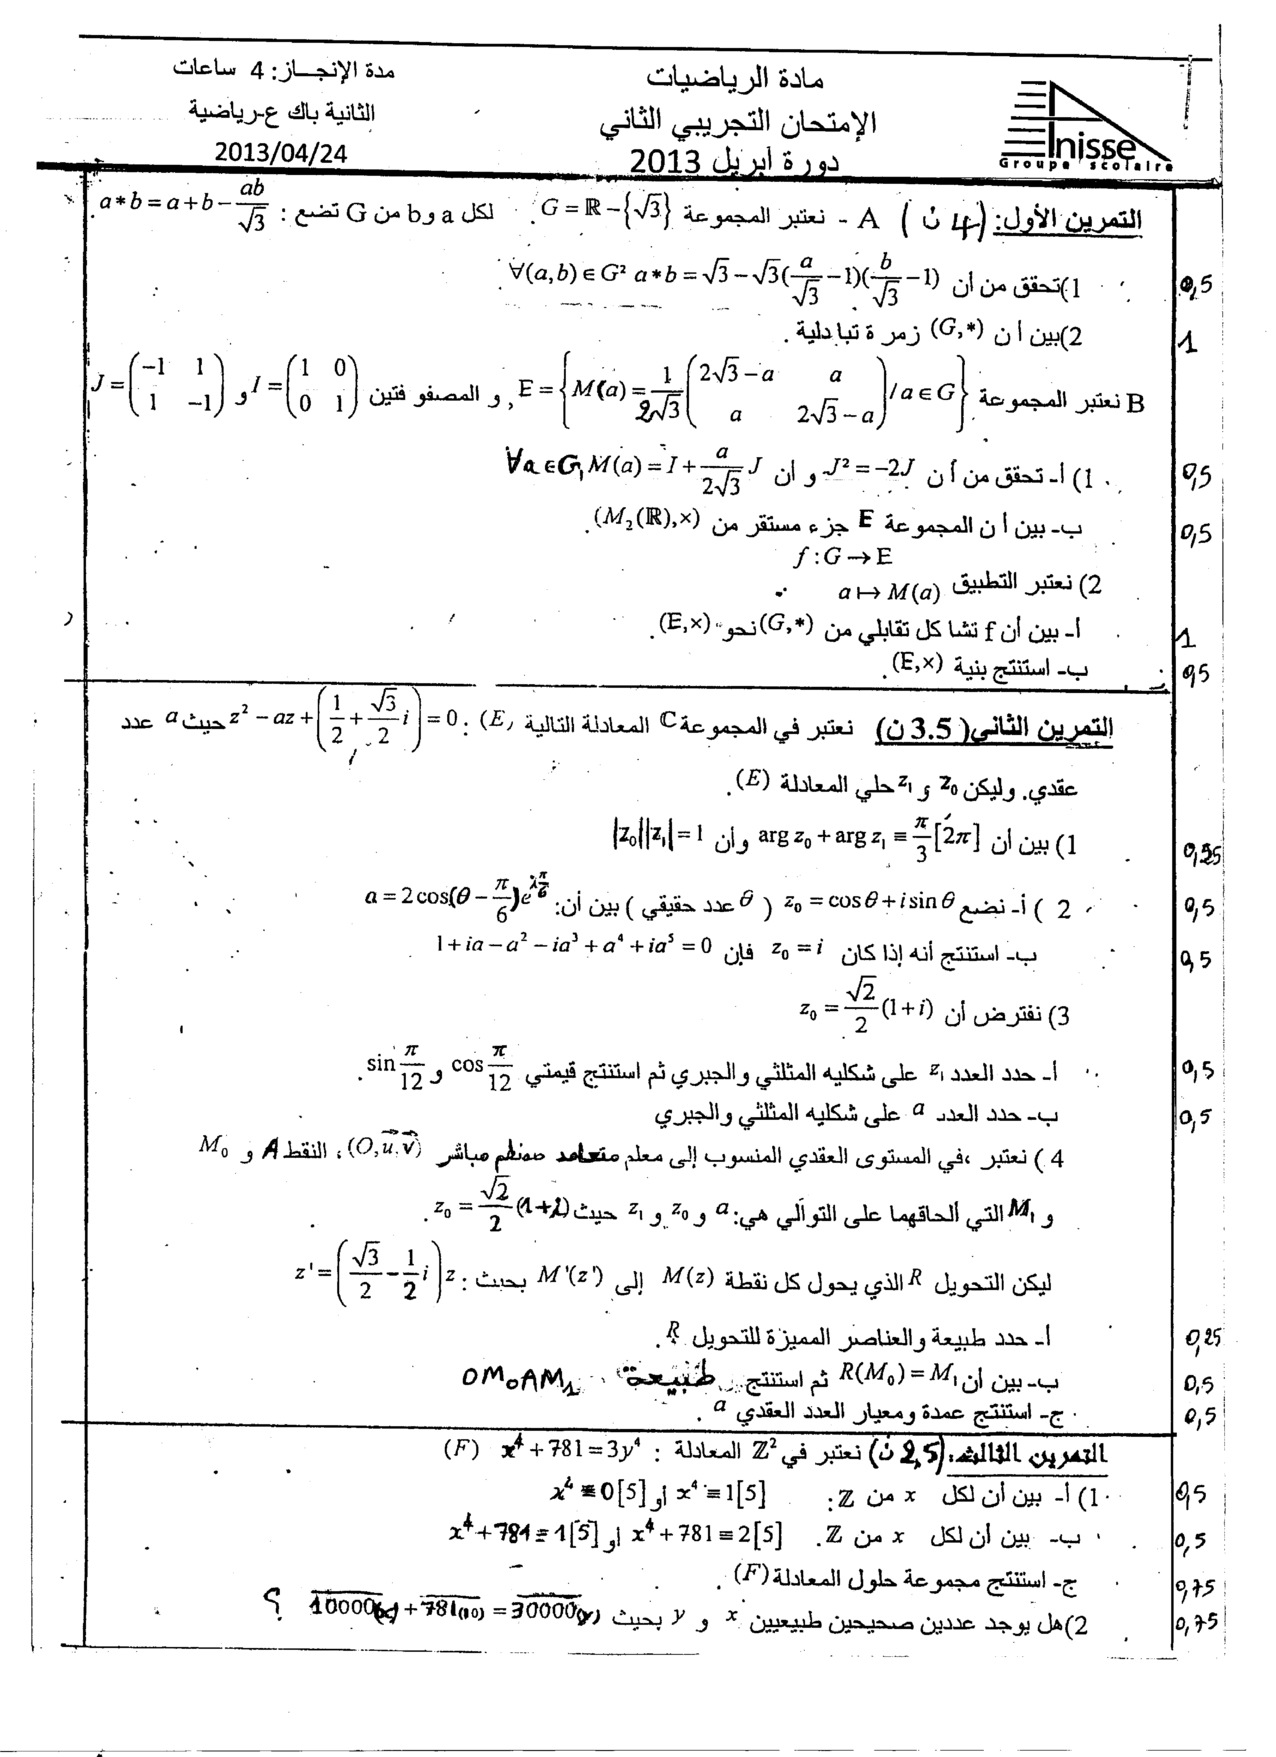 مادة الرياضيات
الإمتحان التجريبي الثاني
دورة أبريل 2013
مدة الإنجاز: 4 ساعات
الثانية باك ع-رياضية
2013/04/24
Inisse
Groupe scolaire
التمرين الأول: (4 ن) A - نعتبر المجموعة G = ℝ - {√3}. لكل a و b من G تضع : a * b = a + b - ab/√3.
1) تحقق من أن ∀(a,b) ∈ G² a * b = √3 - √3(a/√3 - 1)(b/√3 - 1) 0,5
2) بين أن (G,*) زمرة تبادلية. 1
B نعتبر المجموعة E = {M(a) = 1/(2√3) (2√3 - a  a ; a  2√3 - a) / a ∈ G}, و المصفوفتين I = (1 0 ; 0 1) و J = (-1 1 ; 1 -1)
1) أ- تحقق من أن J² = -2J و أن ∀a ∈ G, M(a) = I + a/(2√3) J 0,5
ب- بين أن المجموعة E جزء مستقر من (M₂(ℝ),×). 0,5
2) نعتبر التطبيق f : G → E
a ↦ M(a)
أ- بين أن f تشاكل تقابلي من (G,*) نحو (E,×). 1
ب- استنتج بنية (E,×). 0,5
التمرين الثاني (3.5 ن) نعتبر في المجموعة ℂ المعادلة التالية (E) : z² - az + (1/2 + √3/2 i) = 0 حيث a عدد
عقدي. وليكن z₀ و z₁ حلي المعادلة (E).
1) بين أن arg z₀ + arg z₁ ≡ π/3 [2π] وأن |z₀||z₁| = 1 0,25
2 ) أ- نضع z₀ = cos θ + i sin θ ( θ عدد حقيقي ) بين أن: a = 2cos(θ - π/6)e^{iπ/6} 0,5
ب- استنتج أنه إذا كان z₀ = i فإن 1 + ia - a² - ia³ + a⁴ + ia⁵ = 0 0,5
3) نفترض أن z₀ = √2/2 (1+i)
أ- حدد العدد z₁ على شكليه المثلثي والجبري ثم استنتج قيمتي cos π/12 و sin π/12. 0,5
ب- حدد العدد a على شكليه المثلثي والجبري 0,5
4 ) نعتبر ،في المستوى العقدي المنسوب إلى معلم متعامد ممنظم مباشر (O,u,v) ، النقط A و M₀
و M₁ التي ألحاقهما على التوالي هي: a و z₀ و z₁ حيث z₀ = √2/2 (1+i).
ليكن التحويل R الذي يحول كل نقطة M(z) إلى M'(z') بحيث : z' = (√3/2 - 1/2 i) z
أ- حدد طبيعة والعناصر المميزة للتحويل R. 0,25
ب- بين أن R(M₀) = M₁ ثم استنتج طبيعة OM₀AM₁ 0,5
ج- استنتج عمدة ومعيار العدد العقدي a. 0,5
التمرين الثالث: (2,5 ن) نعتبر في ℤ² المعادلة : x⁴ + 781 = 3y⁴ (F)
1) أ- بين أن لكل x من ℤ: x⁴ ≡ 1[5] أو x⁴ ≡ 0[5] 0,5
ب- بين أن لكل x من ℤ. x⁴ + 781 ≡ 2[5] أو x⁴ + 781 ≡ 1[5] 0,5
ج- استنتج مجموعة حلول المعادلة (F). 0,75
2) هل يوجد عددين صحيحين طبيعيين x و y بحيث 10000₍ₓ₎ + 781₍₁₀₎ = 30000₍y₎ ؟ 0,75